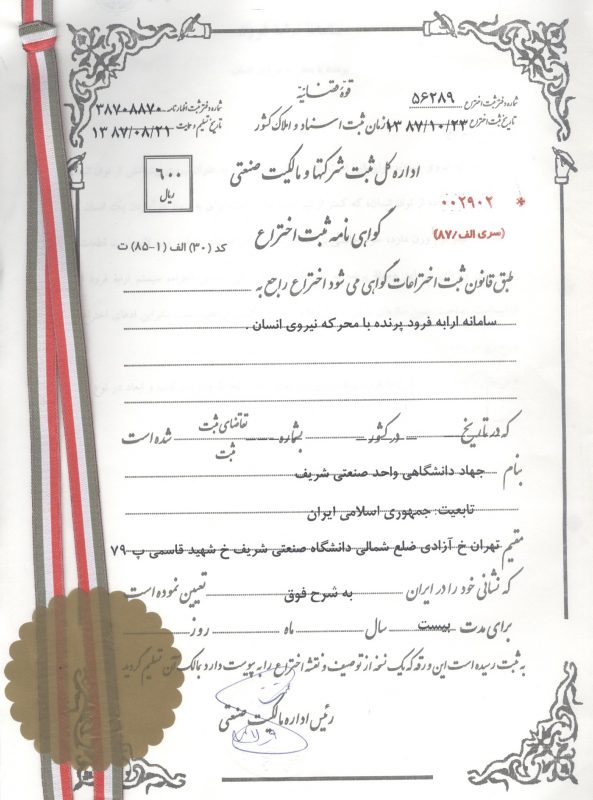 قوه قضائیه
شماره دفتر ثبت اختراع ۵۶۲۸۹
تاریخ ثبت اختراع ۱۳۸۷/۱۰/۲۳
سازمان ثبت اسناد و املاک کشور
شماره دفتر ثبت اظهارنامه ۳۸۷۰۸۸۷۰
تاریخ تسلیم ۱۳۸۷/۰۸/۲۱
اداره کل ثبت شرکتها و مالکیت صنعتی
۶۰۰
ریال
* ۰۰۲۹۰۲
(سری الف/۸۷)
گواهی نامه ثبت اختراع
کد (۳۰) الف (۱-۸۵) ت
طبق قانون ثبت اختراعات گواهی می شود اختراع راجع به
سامانه ارابه فرود پرنده با محرکه نیروی انسان .
که در تاریخ در کشور بشماره تقاضای ثبت شده است
ثبت
بنام جهاد دانشگاهی واحد صنعتی شریف
تابعیت: جمهوری اسلامی ایران
مقیم تهران خ آزادی ضلع شمالی دانشگاه صنعتی شریف خ شهید قاسمی پ ۷۹
که نشانی خود را در ایران به شرح فوق تعیین نموده است
برای مدت بیست سال ماه روز
به ثبت رسیده است این ورقه که یک نسخه از توصیف و نقشه اختراع را به پیوست دارد بمالک آن تسلیم گردید
رئیس اداره مالکیت صنعتی